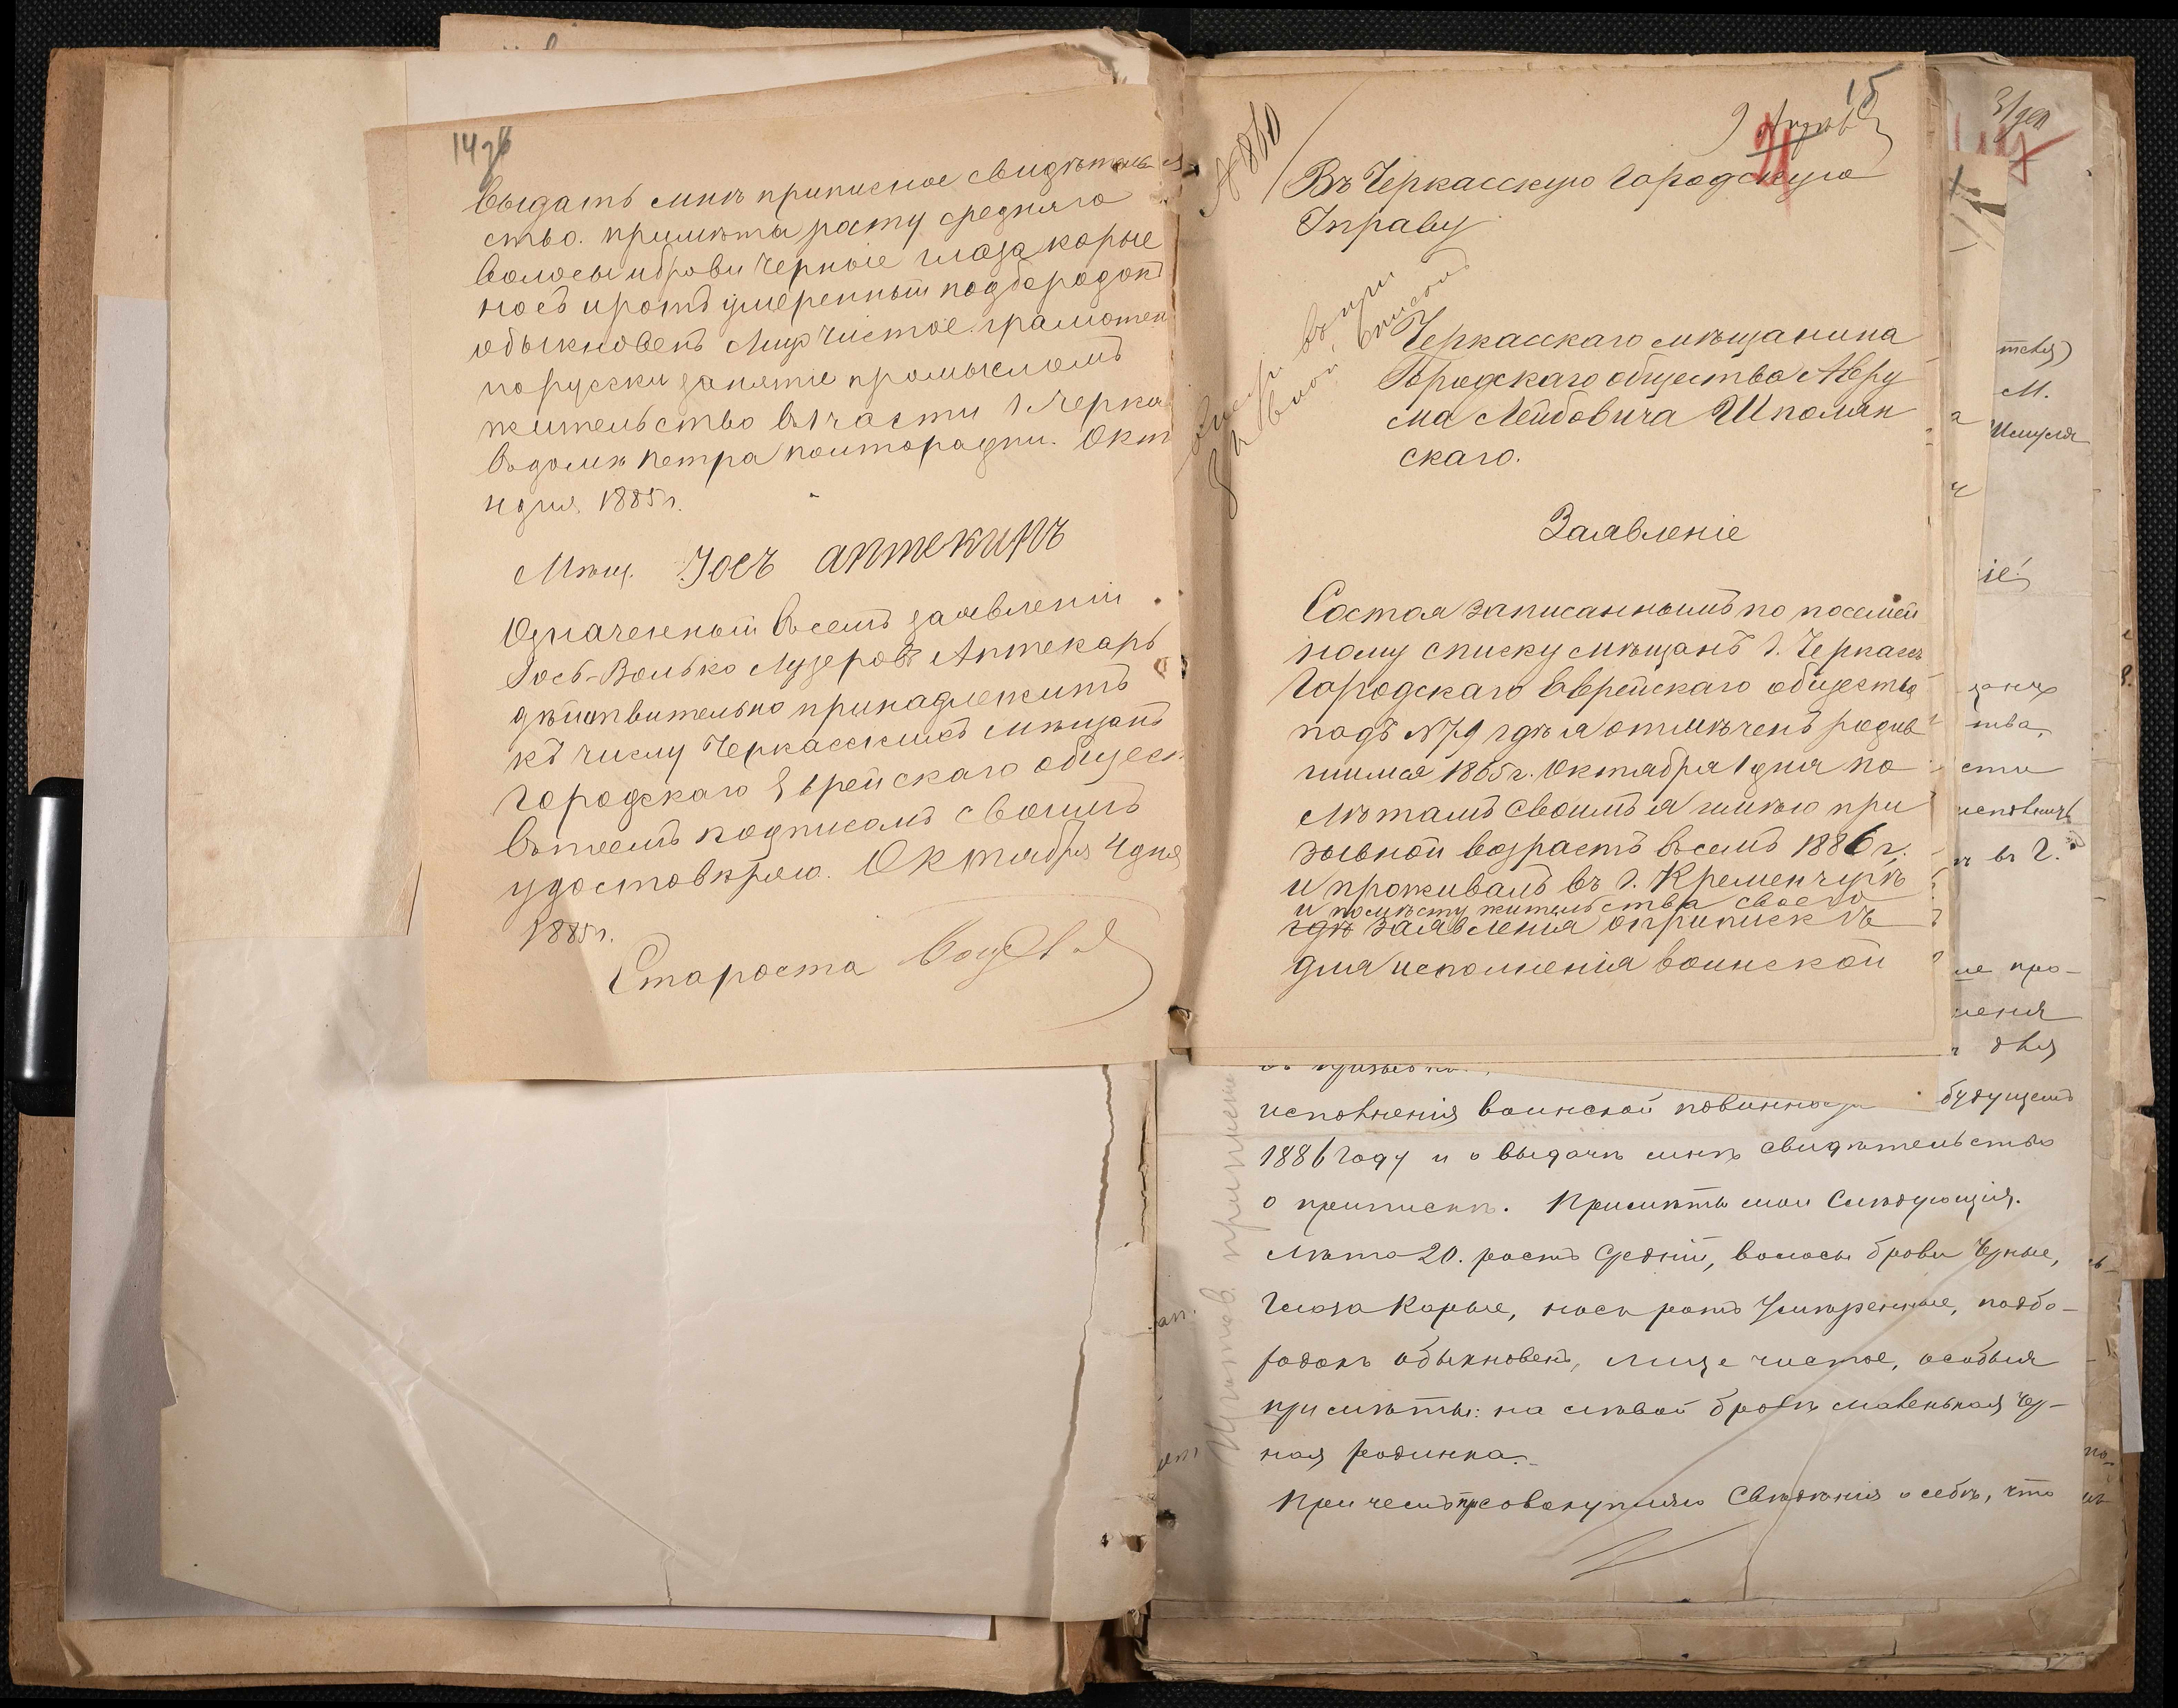 14 об
выдать мнѣ приписное свидѣтель
ство. примѣты росту средняго
волосы и брови черные глаза карые
носъ и ротъ умеренный подбородокъ
обыкновенъ Лицо чистое грамотен
по русски занятіе промысломъ
жительство въ 1 части г. Черка
въ домѣ Петра Окт
1885 г.
Мѣщ. Іосъ аптекирь
Означенный въ семъ заявленіи
Іось-Волько Лузеровъ Аптекарь
дѣйствительно принадлежитъ
къ числу Черкасскихъ мѣщанъ
Городскаго Еврейскаго общест
въ томъ подписомъ своимъ
удостовѣряю. Октября 4 дня
1885 г.
Староста
15
9
21
№ 860
Въ Черкасскую Городскую
Управу
Черкасскаго мѣщанина
Городскаго общества Авру
ма Лейбовича Шполян
скаго.
Заявленіе
Состоя записаннымъ по посемей
ному списку мѣщанъ г. Черкасъ
Городскаго Еврейскаго общества
подъ № 79 гдѣ я отмѣченъ родив
шимся 1865 г. Октября 1 дня по
лѣтамъ своимъ я имѣю при
зывной возрастъ въ семъ 1886 г.
и проживалъ въ г. Кременчугѣ
и по мѣсту жительства своего
гдѣ заявленія о припискѣ
для исполненія воинской
исполненія воинской повинности будущемъ
1886 году и о выдачѣ мнѣ свидѣтельства
о припискѣ. Примѣты мои Слѣдующія.
Лѣта 20. ростъ Средній, волосы брови Черные,
Глаза Карые, носъ ротъ Умѣренные, подбо-
родокъ обыкновенъ, лице чистое, особыя
примѣты: на лѣвой бровѣ маленькая Чер-
ная родинка.
При чемъ присовокупляю Свѣдѣнія о себѣ, что